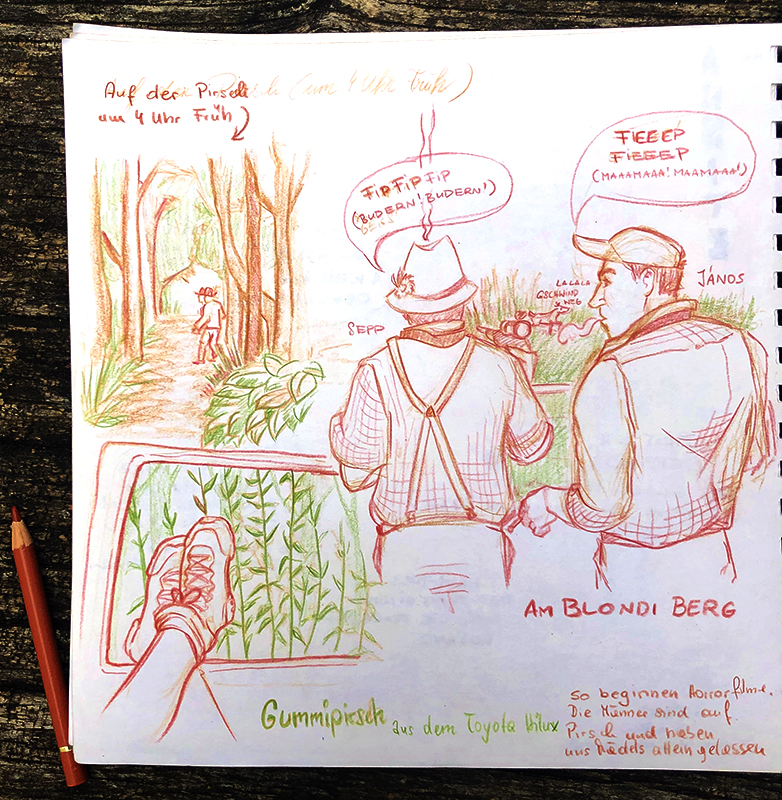 Auf der Pirsch
um 4 Uhr Früh
(um 4 Uhr Früh)
FIP FIP FIP
(BUDERN! BUDERN!)
FIEEEP
FIEEEP
(MAAAMAAA! MAAMAAA!)
LALALA
GSCHWIND
WEG
JÁNOS
SEPP
AM BLONDI BERG
Gummipirsch aus dem Toyota Hilux
so beginnen Horrorfilme.
Die Männer sind auf
Pirsch und haben
uns Mädels allein gelassen